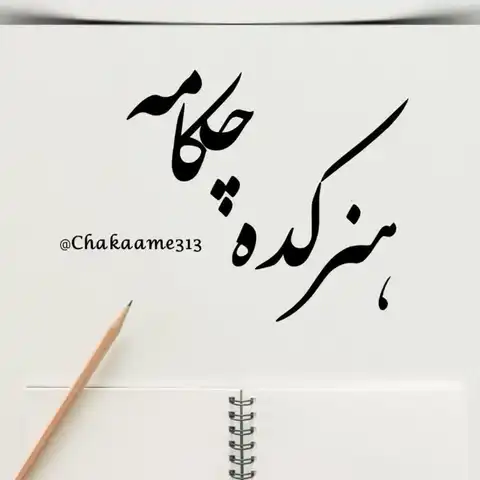 هنرکده
چکامه
@Chakaame313